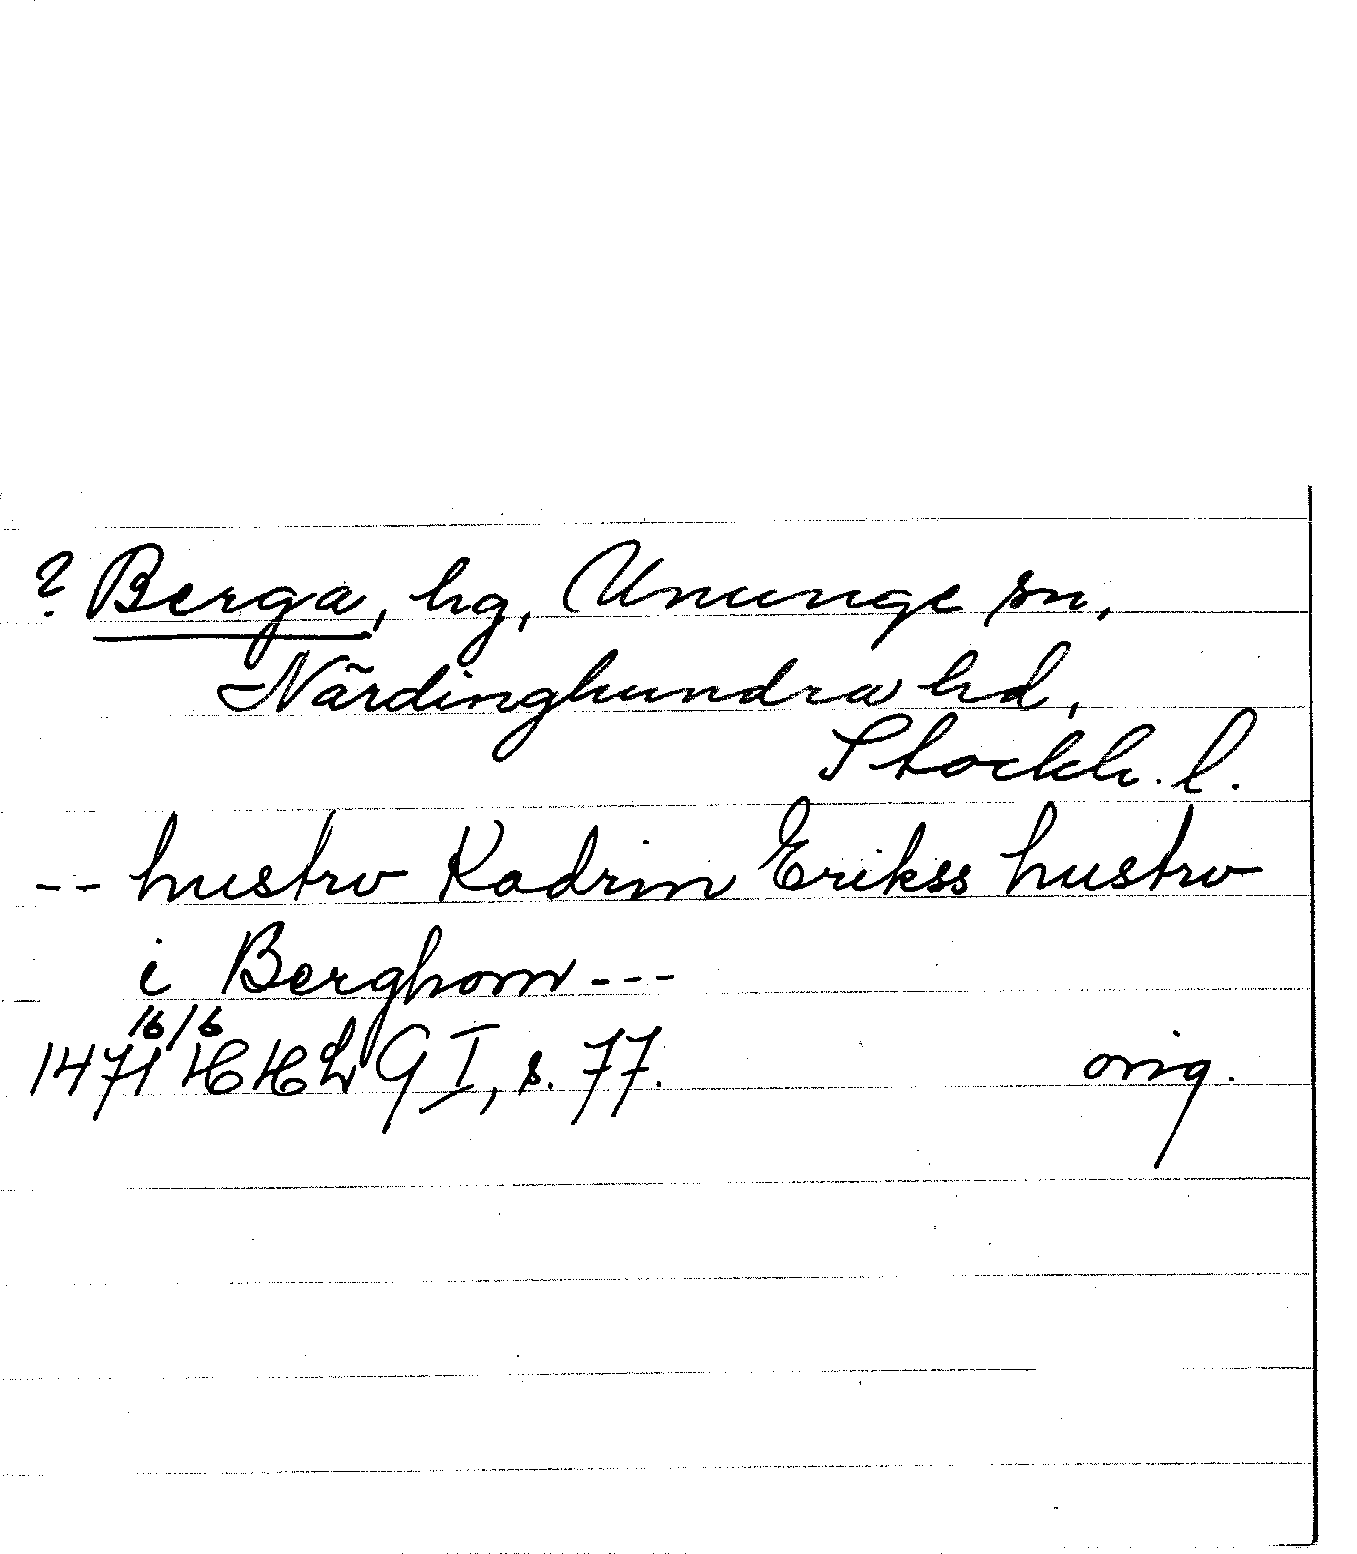 ? Berga, hg, Ununge sn,
Närdinghundra hd,
Stockh. l.
-- hustrv Kadrin Erikss hustrv
i Berghom ---
16/6
1471 HH G I, s. 77.
orig.